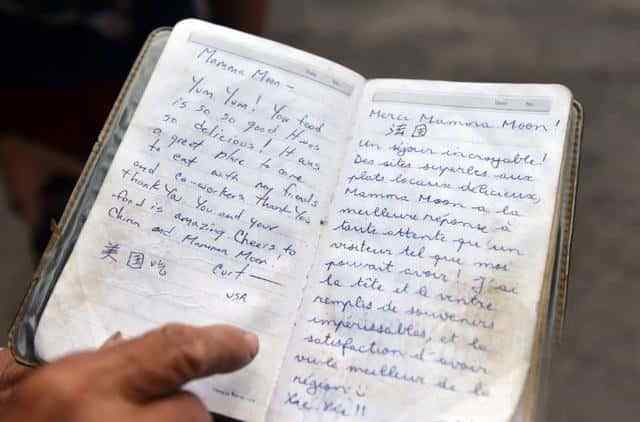 Date No.
Mamma Moon –
Yum Yum! You food
is so so good It was
so delicious! It was
a great place to come
to eat with my friends
and co-workers Thank You
thank You. You and your
food is amazing Cheers to
China and Mamma Moon!
Curt
美国
USA
Date No.
Merci Mamma Moon!
法国
Un séjour incroyable!
Des sites superbes aux
plats locaux délicieux,
Mamma Moon a la
meilleure réponse à
toute attente qu'un
visiteur tel que moi
pouvait avoir! J'ai
la tête et le ventre
remplis de souvenirs
impérissables, et la
satisfaction d'avoir
vu le meilleur de la
région
Xie Xie!!